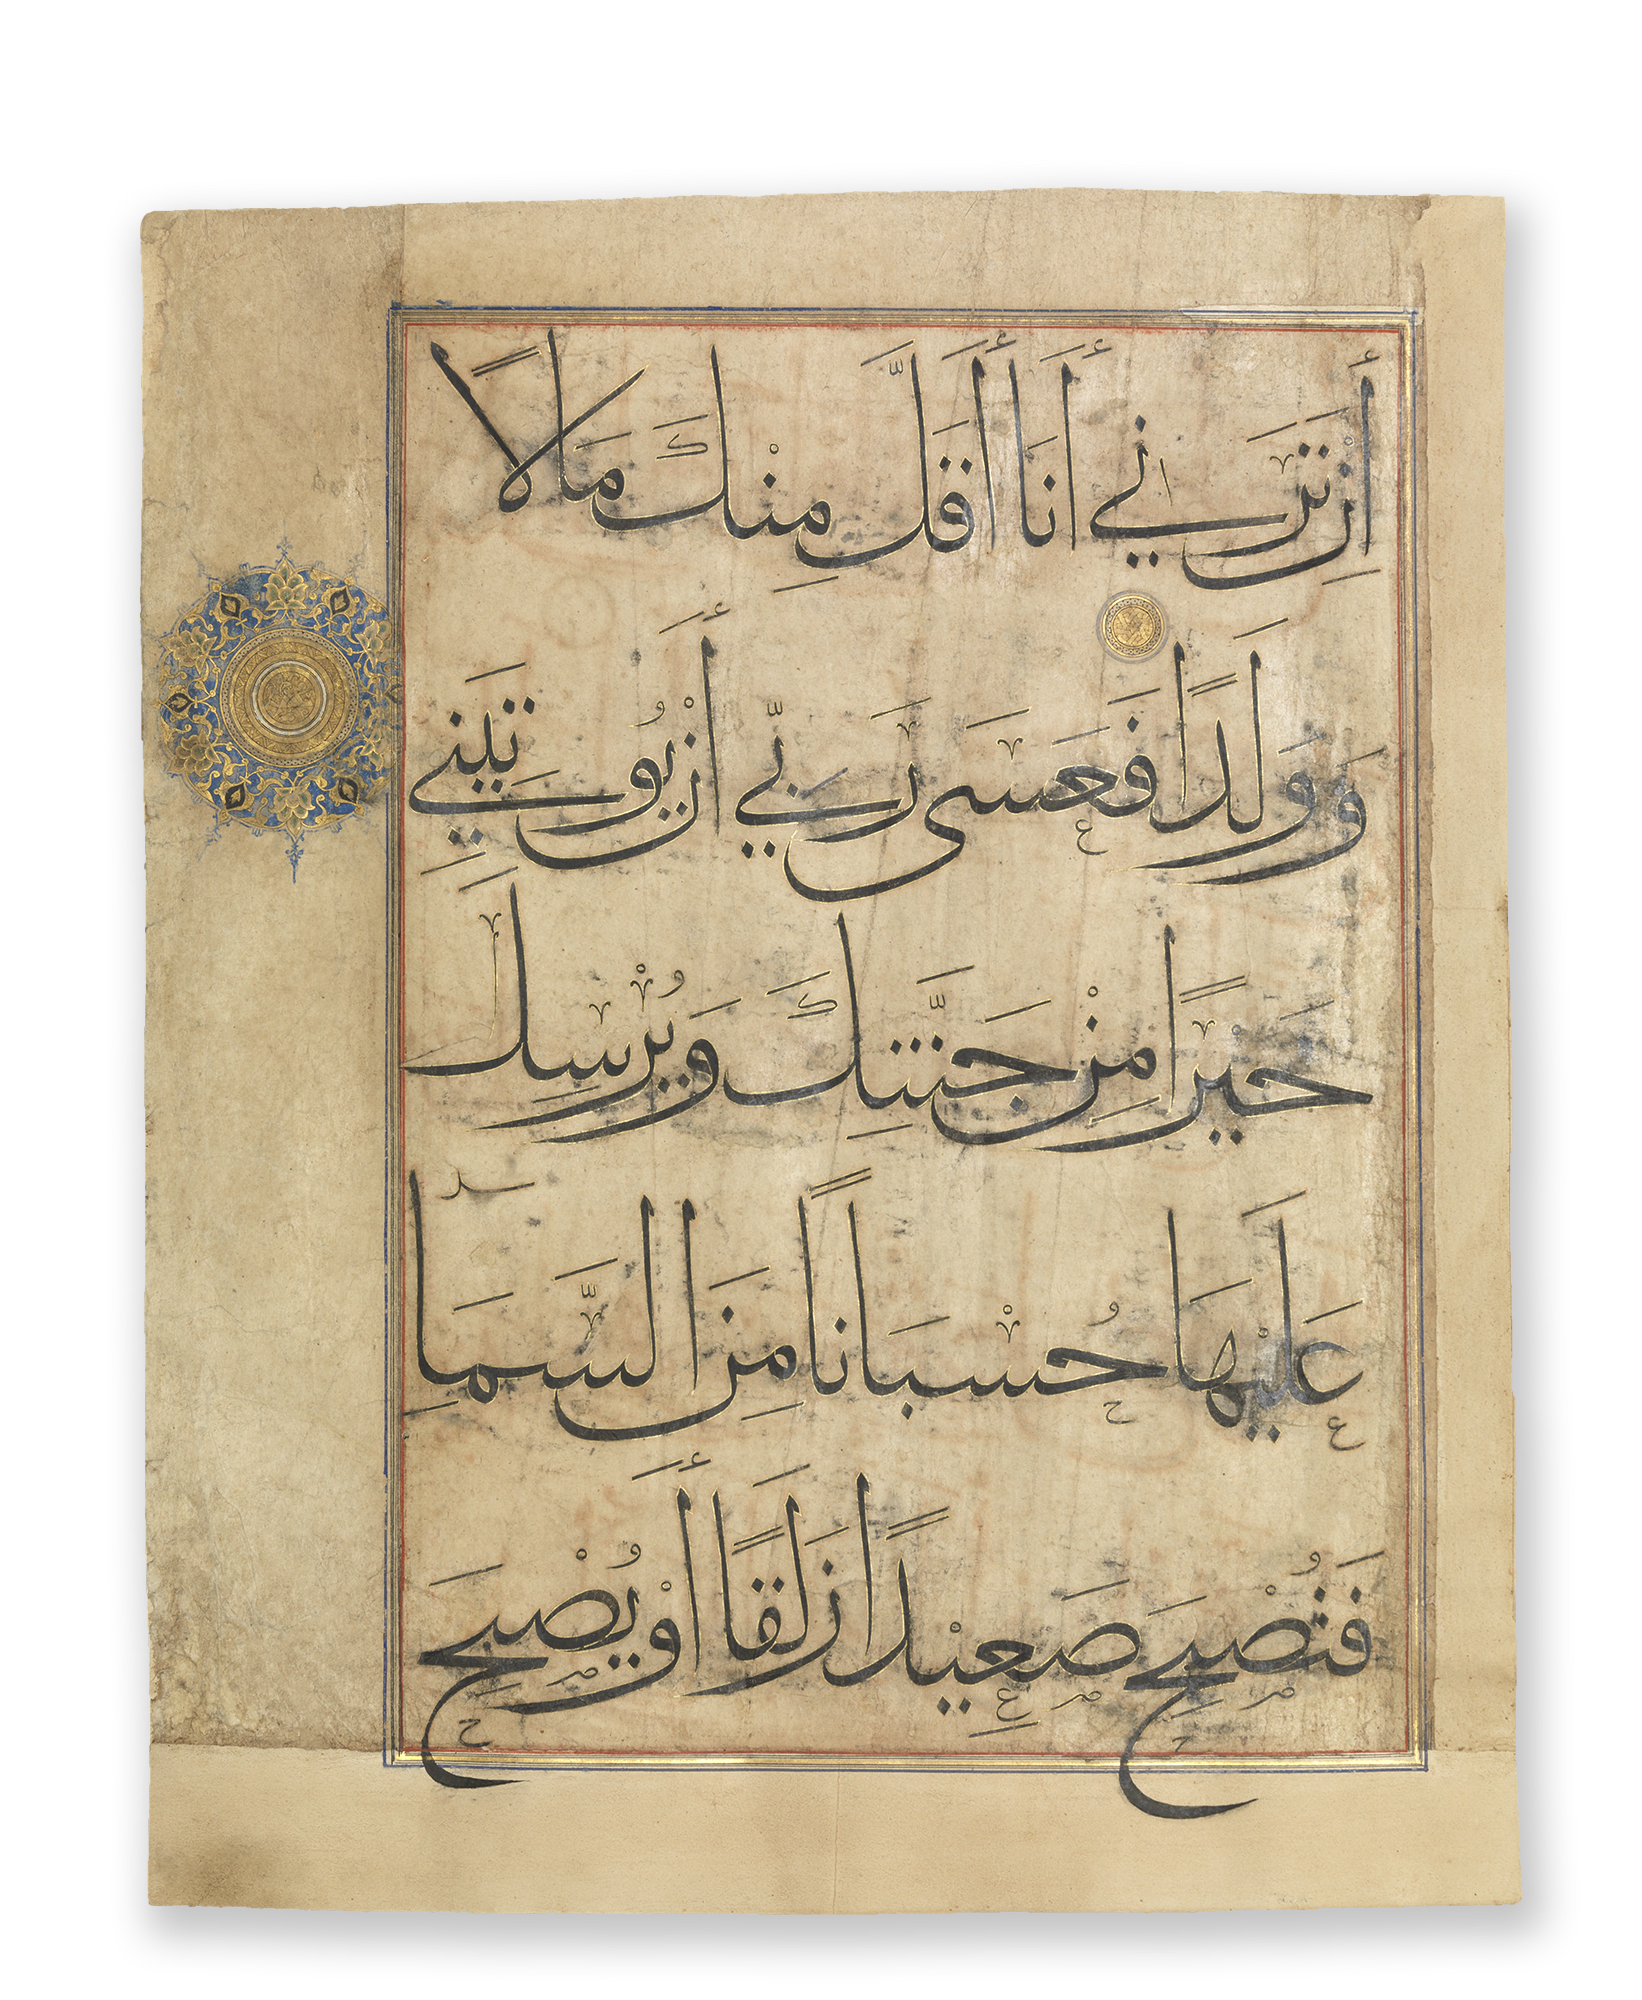 أِنْ تَرَنِي أَنَا أَقَلَّ مِنْكَ مَالًا
وَوَلَدًا فَعَسَى رَبِّي أَنْ يُوتِيَنِي
خَيْرًا مِنْ جَنَّتِكَ وَيُرْسِلَ
عَلَيْهَا حُسْبَانًا مِنَ السَّمَاِ
فَتُصْبِحَ صَعِيْدًا زَلَقًا أَوْ يُصْبِحَ